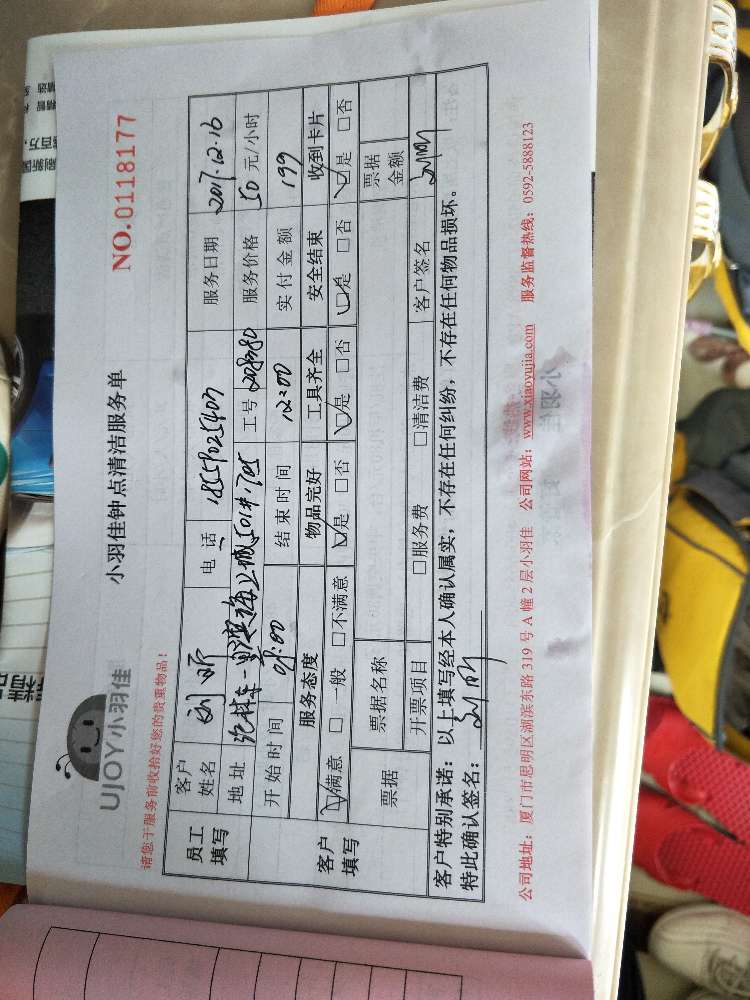 UJOY小羽佳
小羽佳钟点清洁服务单
NO.0118177
请您于服务前收拾好您的贵重物品!
员工填写
客户姓名 刘昕 电话 服务日期 2017.12.16
地址 服务价格 50 元/小时
工号
开始时间 08:00 结束时间 12:00 实付金额 199
客户填写
服务态度 物品完好 工具齐全 安全结束 收到卡片
☑满意 □一般 □不满意 ☑是 □否 ☑是 □否 ☑是 □否 ☑是 □否
票据 票据名称 票据金额
开票项目 □服务费 □清洁费 客户签名
客户特别承诺:以上填写经本人确认属实,不存在任何纠纷,不存在任何物品损坏。
特此确认签名:
公司地址:厦门市思明区湖滨东路 319 号 A 幢 2 层小羽佳 公司网站:www.xiaoyujia.com 服务监督热线:0592-5888123